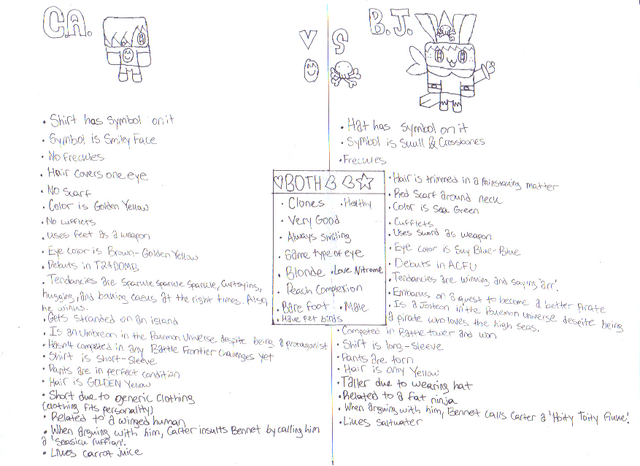 C.A.
VS
B.J.
• Shirt has symbol on it
• Symbol is Smiley Face
• No freckles
• Hair covers one eye
• No scarf
• Color is Golden Yellow
• No cufflets
• Uses feet as a weapon
• Eye color is Brown-Golden Yellow
• Debuts in
• Tendancies are sparcule sparcule sparcule,
hugging, and baking cakes at the right times. Also,
he winks.
• Gets stranded on an island
• Is an Umbreon in the Pokemon Universe despite being a protagonist
• Hasn't competed in any Battle Frontier Challenges yet
• Shirt is short-sleeve
• Pants are in perfect condition
• Hair is GOLDEN Yellow
• Short due to generic clothing
(clothing fits personality)
• Related to a winged human
• When arguing with him, Carter insults Bennet by calling him
a 'Seasick ruffian'.
• Likes carrot juice
BOTH
• Clones • Healthy
• Very Good
• Always smiling
• Same type of eye
• Blonde • Love Nitrome
• Peach Complexion
• Bare Foot • Male
• Have pet birds
• Hat has symbol on it
• Symbol is Skull & Crossbones
• Freckles
• Hair is trimmed in a matter
• Red Scarf around neck
• Color is Sea Green
• Cufflets
• Uses sword as weapon
• Eye Color is Sky Blue-Blue
• Debuts in ACFU
• Tendancies are winking and saying 'arr'.
• Embarks on a quest to become a better pirate
• Is a in the Pokemon Universe despite being
a pirate who loves the high seas.
• Competed in Battle tower and won
• Shirt is long-sleeve
• Pants are torn
• Hair is only Yellow
• Taller due to wearing hat
• Related to a fat ninja
• When arguing with him, Bennet calls Carter a 'Hoity Toity
• Likes saltwater